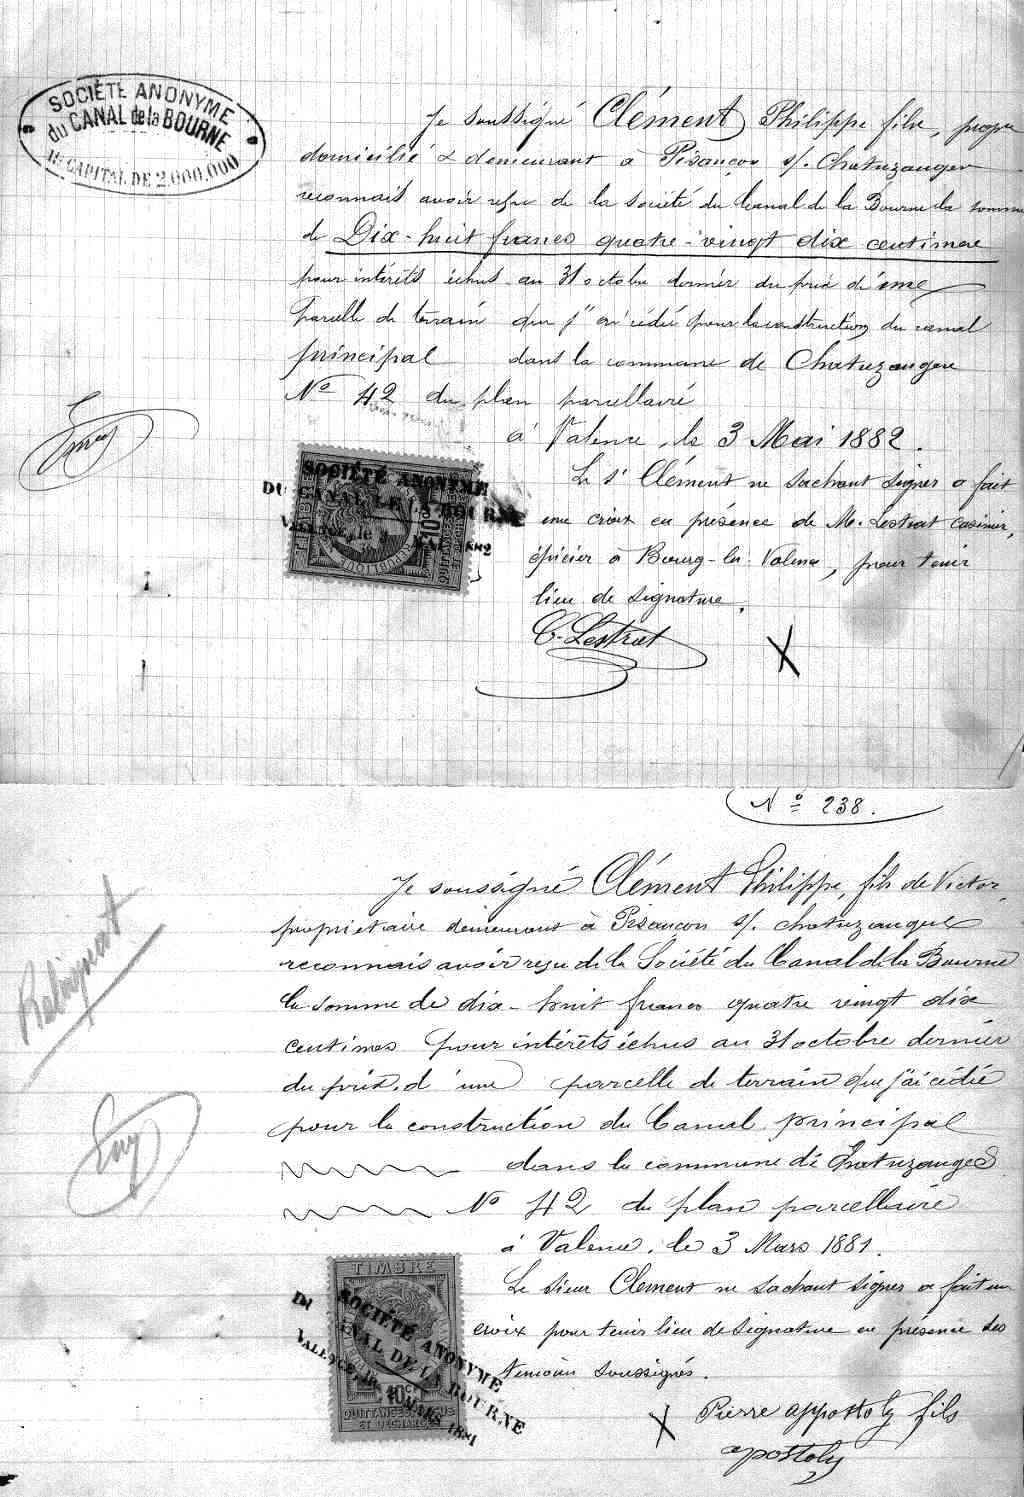 SOCIÉTÉ ANONYME
du CANAL de la BOURNE
AU CAPITAL DE 2.000.000
Je soussigné Clément Philippe fils, propre
domicilié & demeurant à Pisançon s/. Chatuzanges
reconnais avoir reçu de la société du Canal de la Bourne la somme
de Dix-huit francs quatre-vingt dix centimes
pour intérêts échus au 31 octobre dernier du prix d'une
Parcelle de terrain que j'ai cédée pour la construction du canal
principal dans la commune de Chatuzanges
No 42 du plan parcellaire
à Valence, le 3 Mai 1882.
Le sr Clément ne sachant signer a fait
une croix en présence de M. Lestrat Casimir,
épicier à Bourg-les-Valence, pour tenir
lieu de signature.
SOCIÉTÉ ANONYME
DU CANAL DE LA BOURNE
VALENCE, le 3 MAI 1882
10c
C. Lestrat X
No 238.
Je soussigné Clément Philippe, fils de Victor
propriétaire demeurant à Pisançon s/. chatuzanges
reconnais avoir reçu de la Société du Canal de la Bourne
la somme de dix-huit francs quatre vingt dix
centimes pour intérêts échus au 31 octobre dernier
du prix d'une parcelle de terrain que j'ai cédée
pour la construction du Canal principal
dans la commune de Chatuzanges
No 42 du plan parcellaire
à Valence, le 3 Mars 1881.
Le sieur Clément ne sachant signer a fait une
croix pour tenir lieu de signature en présence des
témoins soussignés.
TIMBRE
SOCIÉTÉ ANONYME
DU CANAL DE LA BOURNE
VALENCE, le 10 MARS 1881
10c
QUITTANCES REÇUS
ET DÉCHARGES
X Pierre appostoly fils
apostoly